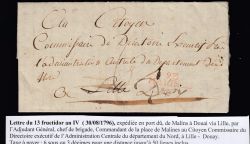 Au Citoyen
Commissaire du Directoire Executif
l'administration Centrale du Departement
Lille
Lettre du 13 fructidor an IV ( 30/08/1796), expédiée en port dû, de Malines à Douai via Lille, par
l'Adjudant Général, chef de brigade, Commandant de la place de Malines au Citoyen Commissaire du
Directoire exécutif de l'Administration Centrale du département du Nord, à Lille - Douay.
Taxe à payer : 6 sous